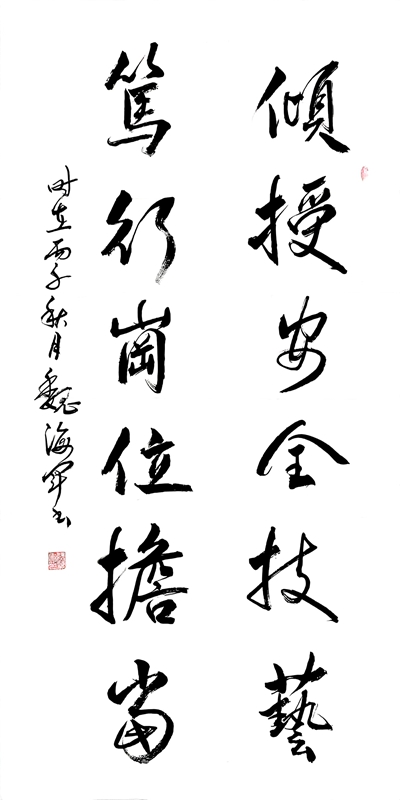 傾授安全技藝
篤行崗位擔當
时在丙子秋月魏海军书